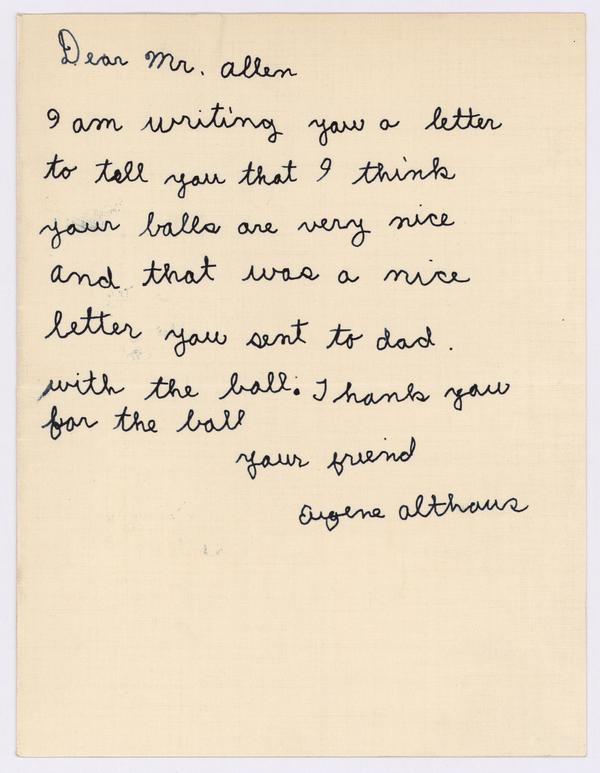 Dear Mr. allen
I am writing you a letter
to tell you that I think
your balls are very nice
and that was a nice
letter you sent to dad.
with the ball. Thank you
for the ball
your friend
eugene althaus